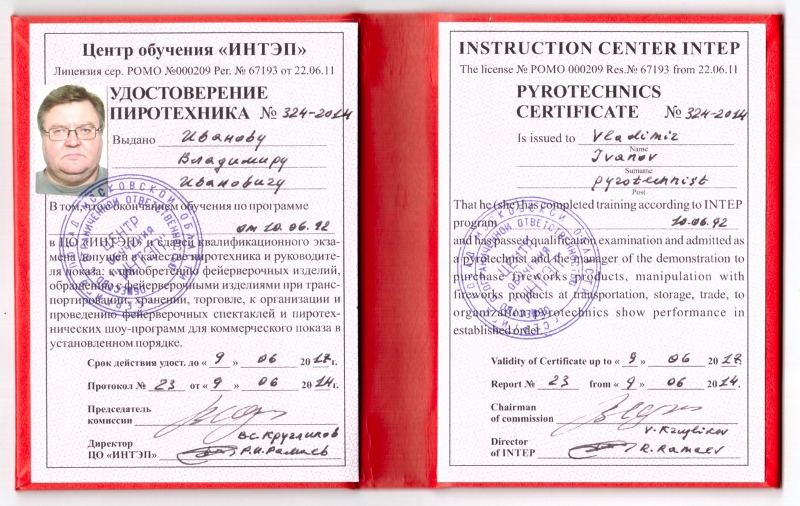 Центр обучения «ИНТЭП»
Лицензия сер. РОМО №000209 Рег. № 67193 от 22.06.11
УДОСТОВЕРЕНИЕ
ПИРОТЕХНИКА № 324-2014
Выдано Иванову
Владимиру
Ивановичу
В том, что окончанием обучения по программе
от 10.06.92
в ЦО «ИНТЭП» и сдачей квалификационного экза-
мена допущен в качестве пиротехника и руководите-
ля показа: к приобретению фейерверочных изделий,
обращению с фейерверочными изделиями при транс-
портировании, хранении, торговле, к организации и
проведению фейерверочных спектаклей и пиротех-
нических шоу-программ для коммерческого показа в
установленном порядке.
Срок действия удост. до « 9 » 06 2017г.
Протокол № 23 от « 9 » 06 2014г.
Председатель
комиссии
В.С. Кругликов
Директор
ЦО «ИНТЭП» Р.И. Рамаев
INSTRUCTION CENTER INTEP
The license № РОМО 000209 Res.№ 67193 from 22.06.11
PYROTECHNICS
CERTIFICATE № 324-2014
Is issued to Vladimir
Name
Ivanov
Surname
pyrotechnist
Post
That he (she) has completed training according to INTEP
program 10.06.92
and has passed qualification examination and admitted as
a pyrotechnist and the manager of the demonstration to
purchase fireworks products, manipulation with
fireworks products at transportation, storage, trade, to
organization pyrotechnics show performance in
established order.
Validity of Certificate up to « 9 » 06 2017.
Report № 23 from « 9 » 06 2014.
Chairman
of commission
V. Kruglikov
Director
of INTEP R. Ramaev